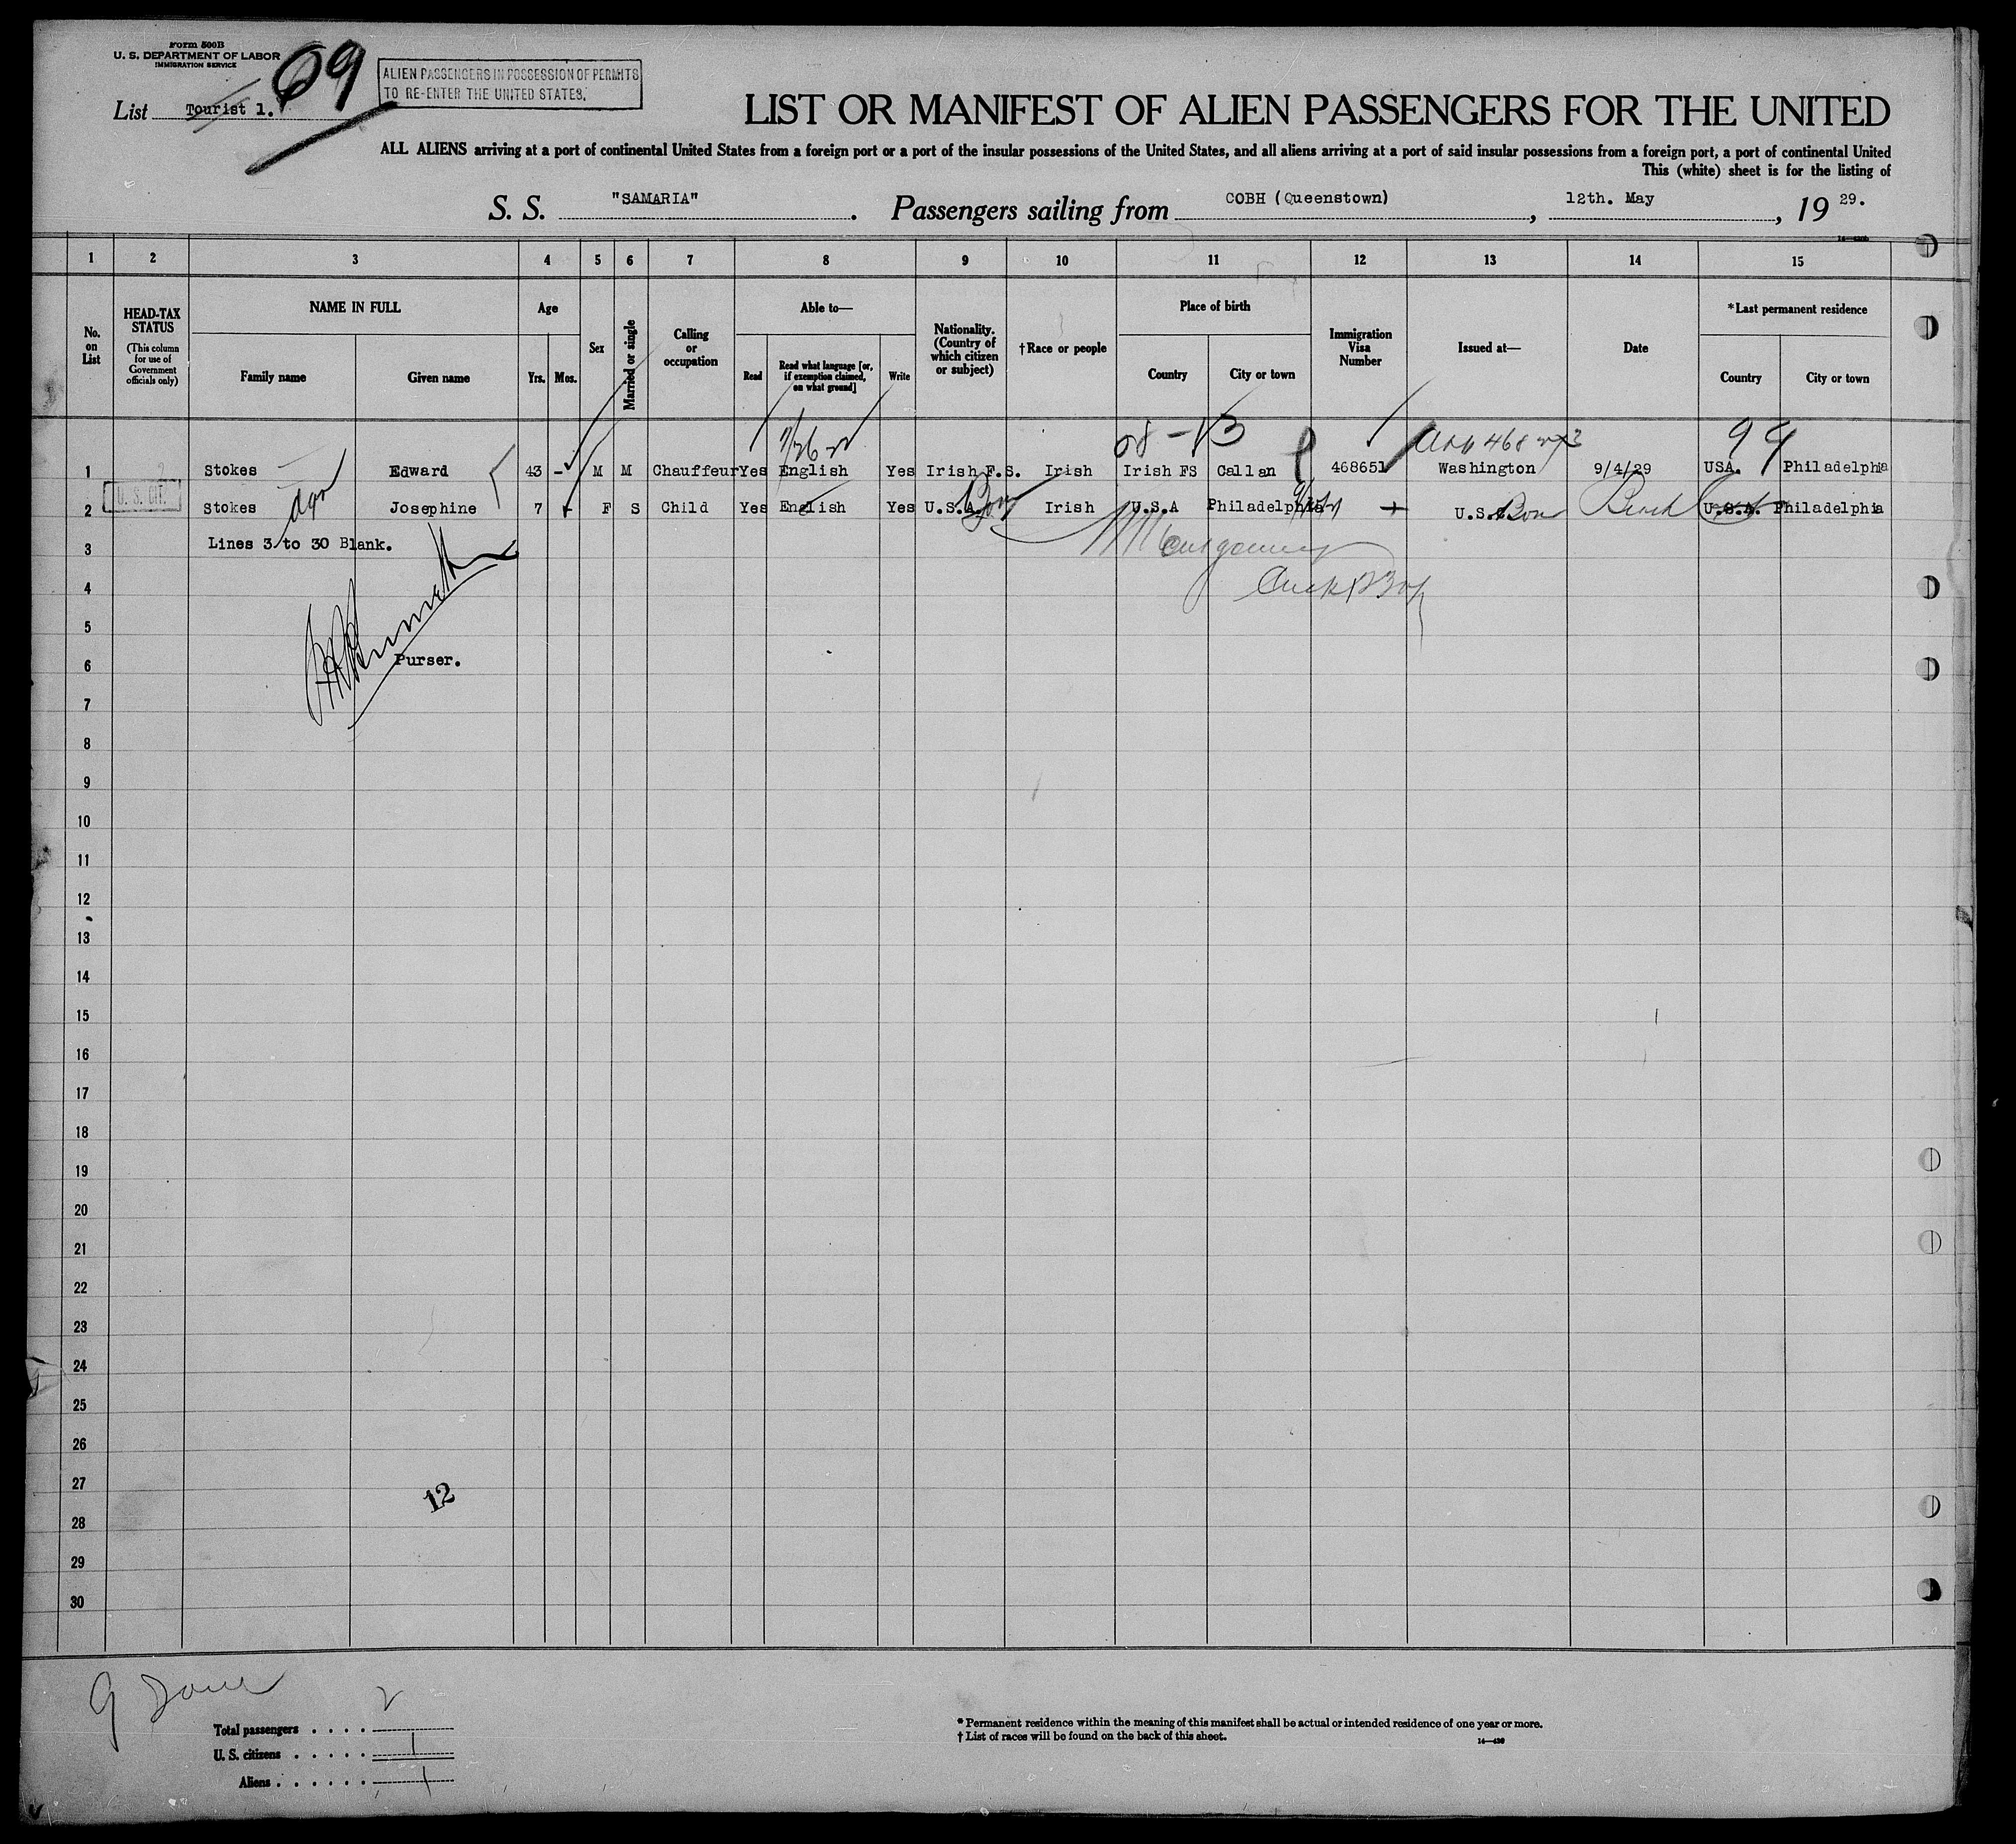 Form 500B
U. S. DEPARTMENT OF LABOR
IMMIGRATION SERVICE
List Tourist 1. 69
ALIEN PASSENGERS IN POSSESSION OF PERMITS
TO RE-ENTER THE UNITED STATES.
LIST OR MANIFEST OF ALIEN PASSENGERS FOR THE UNITED
ALL ALIENS arriving at a port of continental United States from a foreign port or a port of the insular possessions of the United States, and all aliens arriving at a port of said insular possessions from a foreign port, a port of continental United
This (white) sheet is for the listing of
S. S. "SAMARIA". Passengers sailing from COBH (Queenstown), 12th. May, 19 29.
1 2 3 4 5 6 7 8 9 10 11 12 13 14 15
No. on List
HEAD-TAX STATUS
(This column for use of Government officials only)
NAME IN FULL
Family name
Given name
Age
Yrs. Mos.
Sex
Married or single
Calling or occupation
Able to—
Read
Read what language [or, if exemption claimed, on what ground]
Write
Nationality. (Country of which citizen or subject)
†Race or people
Place of birth
Country
City or town
Immigration Visa Number
Issued at—
Date
*Last permanent residence
Country
City or town
99
1 Stokes Edward 43 - M M Chauffeur Yes English Yes Irish F.S. Irish Irish FS Callan 468651 Washington 9/4/29 USA. Philadelphia
U. S. CIT.
2 Stokes Josephine 7 - F S Child Yes English Yes U.S.A. Irish U.S.A Philadelphia U.S. U.S.A. Philadelphia
3 Lines 3 to 30 Blank.
Montgomery
4
5
6 Purser.
7
8
9
10
11
12
13
14
15
16
17
18
19
20
21
22
23
24
25
26
27
12
28
29
30
Total passengers . . . . 2
U. S. citizens . . . . . 1
Aliens . . . . . . 1
* Permanent residence within the meaning of this manifest shall be actual or intended residence of one year or more.
† List of races will be found on the back of this sheet.
14—430